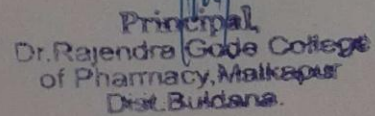 Principal,
Dr.Rajendra Gode College
of Pharmacy, Malkapur
Dist. Buldana.